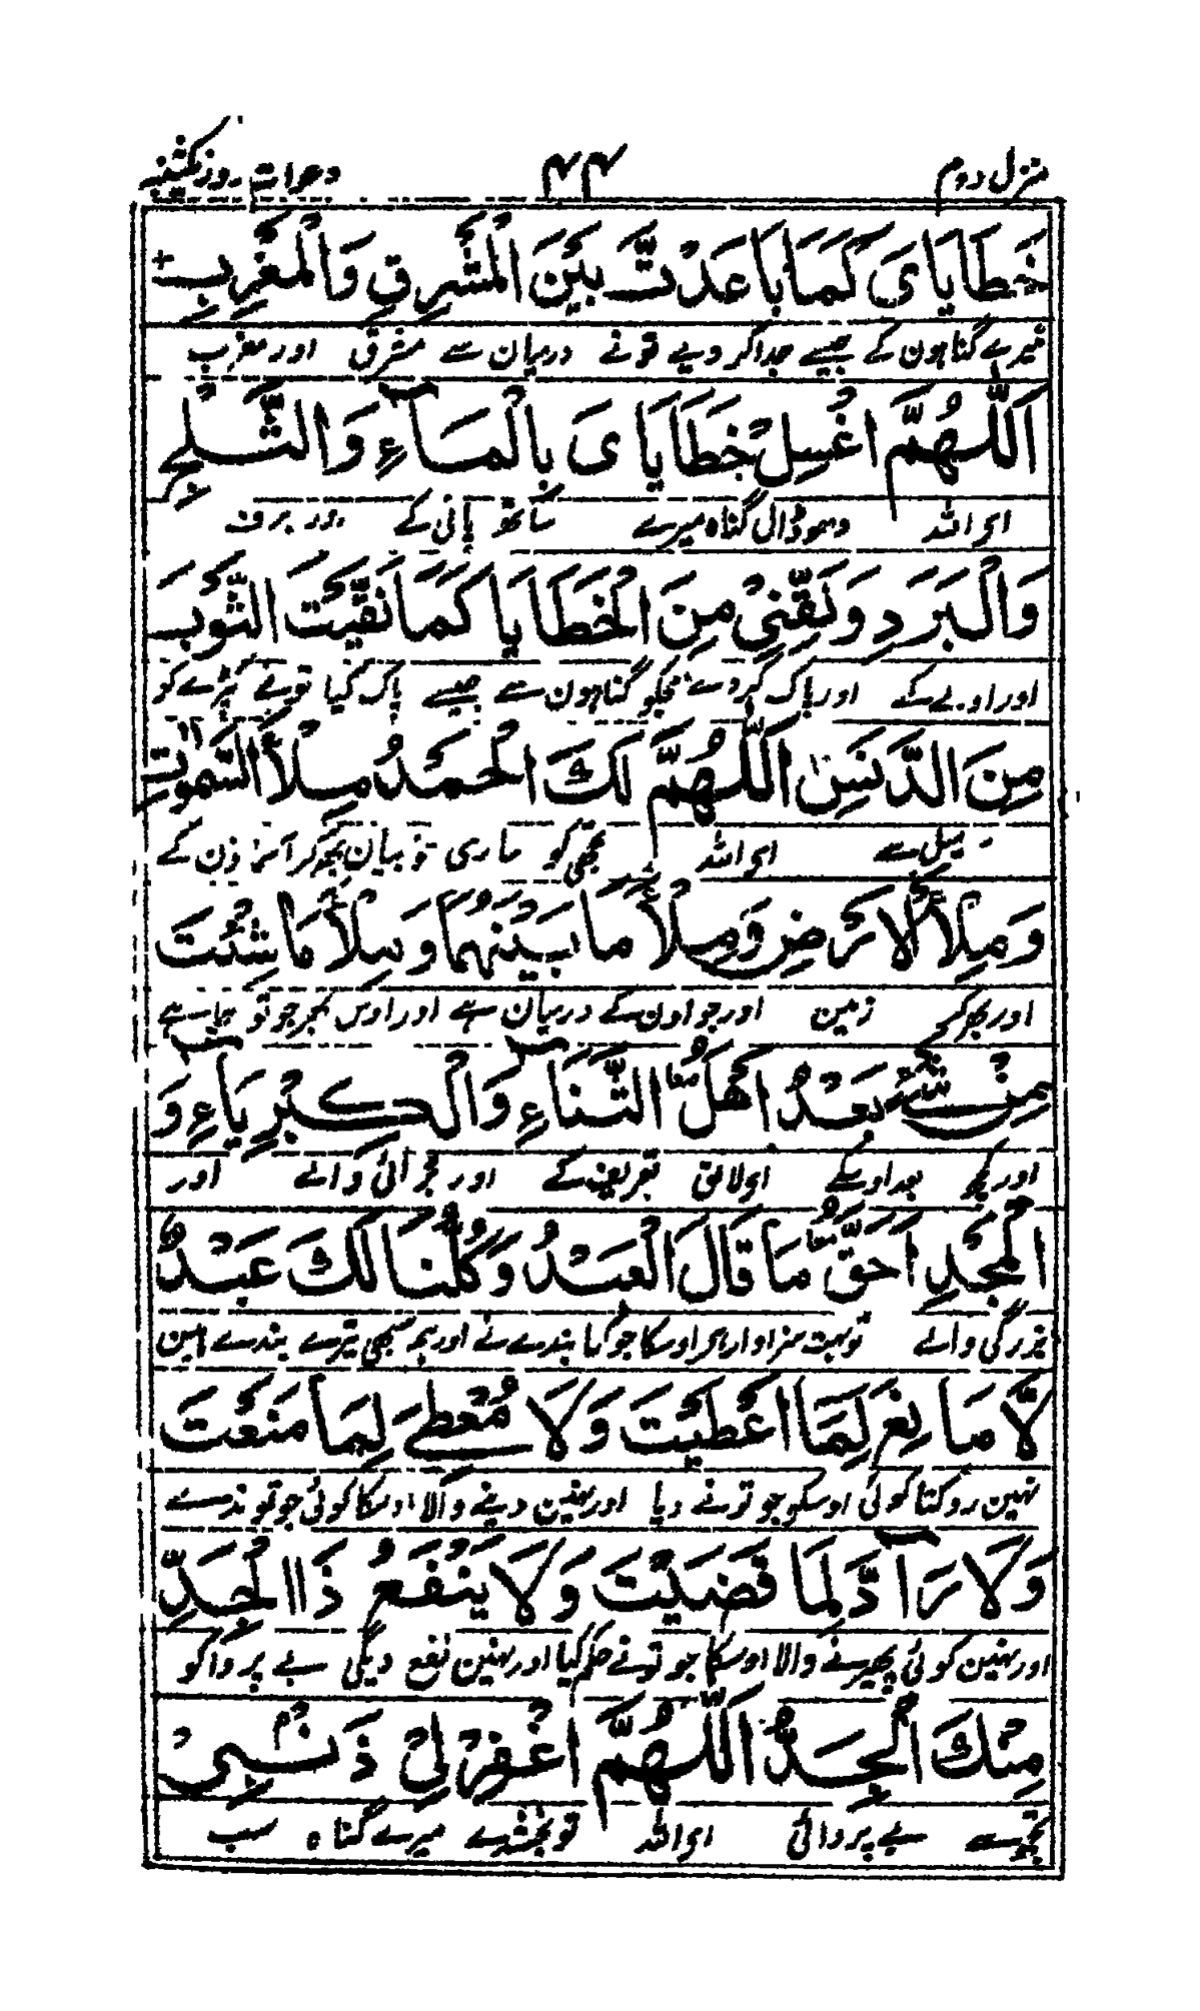 منزل دوم ۴۴ دعوات روز یکشنبہ
خَطَايَايَ كَمَا بَاعَدْتَّ بَيْنَ الْمَشْرِقِ وَالْمَغْرِبِ
میرے گناہون کے جیسے جدا کر دیے تونے درمیان سے مشرق اور مغرب
اَللّٰهُمَّ اغْسِلْ خَطَايَايَ بِالْمَآءِ وَالثَّلْجِ
ای اللہ دھو ڈال گناہ میرے ساتھ پانی کے اور برف
وَالْبَرَدِ وَنَقِّنِيْ مِنَ الْخَطَايَا كَمَا نَقَّيْتَ الثَّوْبَ
اور اولے کے اور پاک کردے مجکو گناہون سے جیسے پاک کیا تونے کپڑے کو
مِنَ الدَّنَسِ اَللّٰهُمَّ لَكَ الْحَمْدُ مِلْأَ السَّمٰوٰتِ
میل سے ای اللہ تجھی کو ساری خوبیان بھر کر آسمانون کے
وَمِلْأَ الْاَرْضِ وَمِلْأَ مَا بَيْنَهُمَا وَمِلْأَ مَا شِئْتَ
اور بھر کے زمین اور جو اون کے درمیان ہے اور اوس بھر جو تو چاہے
مِنْ شَيْءٍ بَعْدُ اَهْلَ الثَّنَاءِ وَالْكِبْرِيَآءِ وَ
اور کچھ بعد اوسکے ای لائق تعریف کے اور بڑائی والے اور
الْمَجْدِ اَحَقُّ مَا قَالَ الْعَبْدُ وَكُلُّنَا لَكَ عَبْدٌ
بزرگی والے تو بہت سزاوار ہر اوسکا جو کہا بندے نے اور ہم سبھی تیرے بندے ہین
لَّا مَانِعَ لِمَا اَعْطَيْتَ وَلَا مُعْطِيَ لِمَا مَنَعْتَ
نہین روکتا کوئی اوسکو جو تونے دیا اور نہین دینے والا اوسکا کوئی جو تو ندے
وَلَا رَآدَّ لِمَا قَضَيْتَ وَلَا يَنْفَعُ ذَا الْجَدِّ
اور نہین کوئی پھیرنے والا اوسکا جو تونے حکم کیا اور نہین نفع دیگی بے پروا کو
مِنْكَ الْجَدُّ اَللّٰهُمَّ اغْفِرْ لِيْ ذَنْبِيْ
تجھ سے بے پروائی ای اللہ تو بخشدے میرے گناہ سب